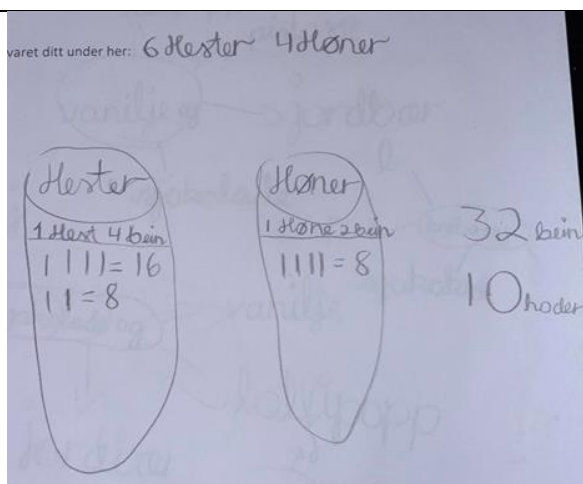 varet ditt under her: 6 Hester 4 Høner
Hester
1 Hest 4 bein
| | | | = 16
| | = 8
Høner
1 Høne 2 bein
| | | | = 8
32 bein
10 hoder